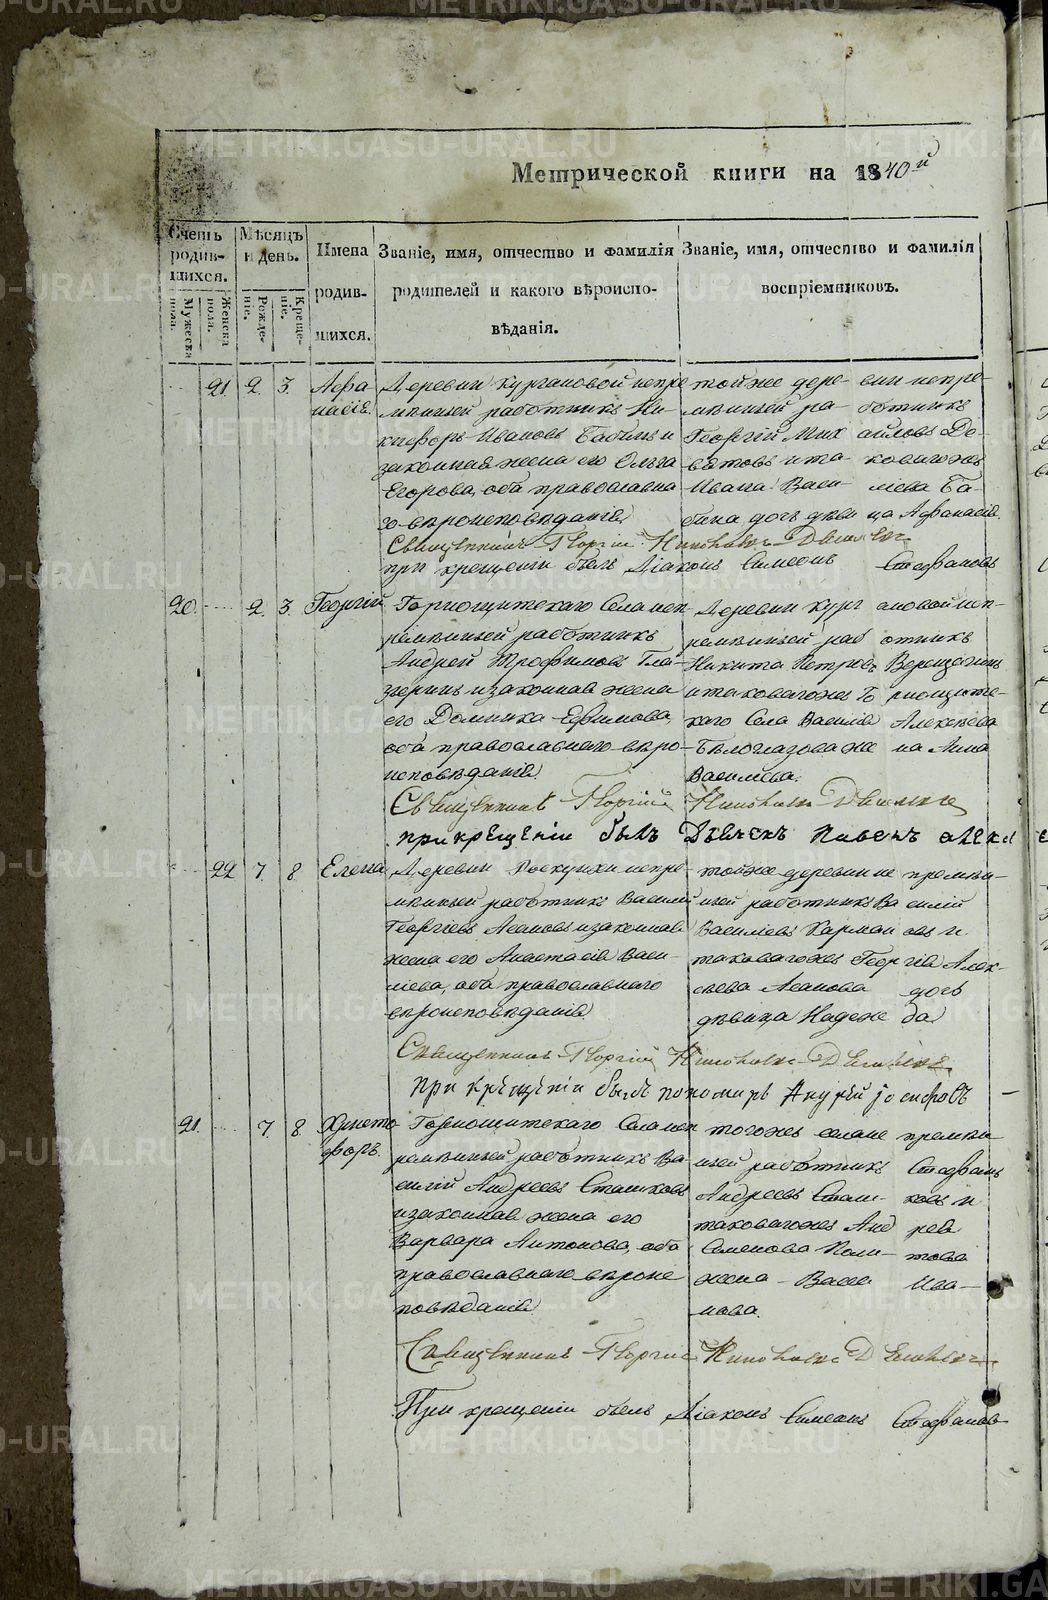 Метрической книги на 1840й
Счетъ родив-шихся.
Мужеска пола.
Женска пола.
Мѣсяцъ и день.
Рожде-ніе.
Креще-ніе.
Имена родив-шихся.
Званіе, имя, отчество и фамилія родителей и какого вѣроиспо-вѣданія.
Званіе, имя, отчество и фамилія воспріемниковъ.
21. 2. 3. Афа-
насія.
Деревни Кургановой непре-
мѣнный работникъ Ни-
кифоръ Ивановъ Бабинъ и
законная жена его Ольга
Егорова, оба православна-
го вѣроисповѣданія
той же деревни непре-
мѣнный работникъ
Георгій Михайловъ Де-
вятовъ и таковагожъ
Ивана Васи-ліева Ба-
бина дочь дѣвица Афанасія.
Священникъ Георгій
при крещеніи былъ Діаконъ Симеонъ Стефановъ
20. 2. 3. Георгій
Горнощитскаго Села неп-
ремѣнный работникъ
Андрей Трофимовъ Гла-
зыринъ и законная жена
его Домника Ефимова,
оба православнаго вѣро-
исповѣданія
Деревни Кургановой неп-
ремѣнный работникъ
Никита Петровъ Верещагинъ
и таковагожъ Горнощитс-
каго Села Василія Алексѣева
Бѣлоглазова жена Анна
Васильева.
Священникъ Георгій
при крещеніи былъ
22 7. 8. Елена
Деревни непре-
мѣнный работникъ Василій
Георгіевъ и законная
жена его Анастасія Васи-
ліева, оба православнаго
вѣроисповѣданія
той же деревни непремѣн-
ный работникъ Василій
Василіевъ и
таковагожъ Георгія Алек-
сѣева дочь
дѣвица Надежда
Священникъ Георгій
при крещеніи былъ пономарь Іосифовъ
21. 7. 8. Христо-
форъ.
Горнощитскаго Села неп-
ремѣнный работникъ Ва-
силій Андреевъ Сташковъ
и законная жена его
Варвара Антонова, оба
православнаго вѣроис-
повѣданія
тогожъ села непремѣн-
ный работникъ Стефанъ
Андреевъ Сташковъ и
таковагожъ Андрея
Семенова
жена Васса Ива-
нова.
Священникъ Георгій
При крещеніи былъ Діаконъ Симеонъ Стефановъ
METRIKI.GASO-URAL.RU